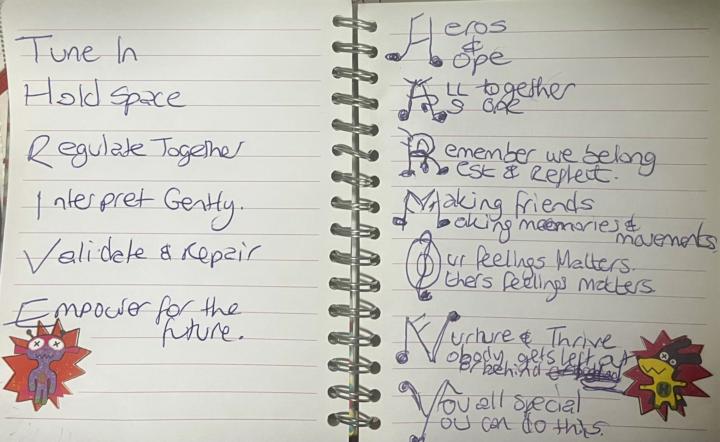 Tune In
Hold Space
Regulate Together
Interpret Gently.
Validate & Repair
Empower for the
future.
Heros
&
ope
All together
s one
Remember we belong
est & Reflect.
Making friends
aking memories &
movements
Our feelings Matters.
thers feelings matters
Nurture & Thrive
obody gets left out
or behind
You all special
ou can do this.